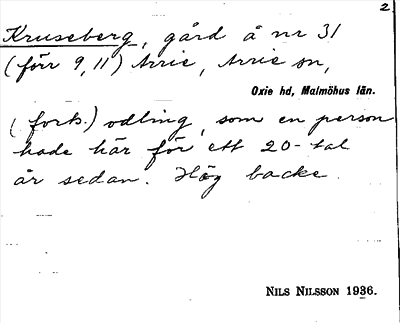 2
Kruseberg, gård å nr 31
(förr 9, 11) Arrie, Arrie sn,
Oxie hd, Malmöhus län.
(forts.) odling, som en person
hade här för ett 20-tal
år sedan. Hög backe.
NILS NILSSON 1936.